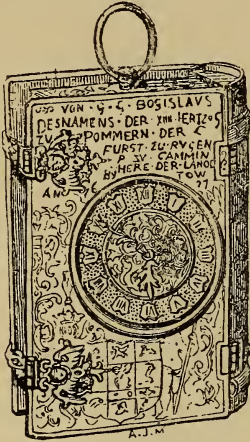 VON · G · G · BOGISLAVS
DESNAMENS · DER · XIII · HERTZOG
POMMERN · DER
FURST · ZU · RVGEN
P · ZV · CAMMIN
HERE · DER · LANDE
TOW
A.J.M